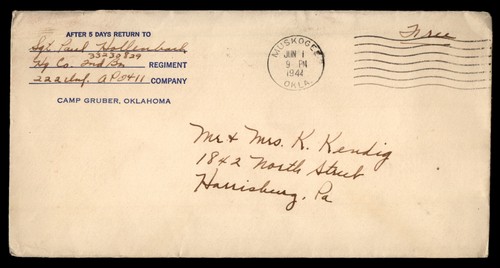 AFTER 5 DAYS RETURN TO
Sgt Paul Hollenbach
33238829
Hq Co. 2nd Bn REGIMENT
222 Inf. APO 411 COMPANY
CAMP GRUBER, OKLAHOMA
MUSKOGEE
JUN 1
9 PM
1944
OKLA.
Free
Mr & Mrs. K. Kendig
1842 North Street
Harrisburg, Pa